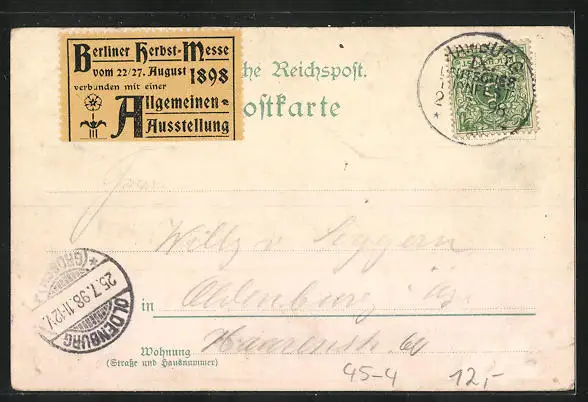 Berliner Herbst-Messe
vom 22/27. August 1898
verbunden mit einer
Allgemeinen-
Ausstellung
che Reichspost.
ostkarte
HAMBURG
IX.
DEUTSCHES
TURNFEST
Herrn
Willy v. Seggern
in Oldenburg i/Gr.
Haarenstr. 60
Wohnung
(Straße und Hausnummer)
OLDENBURG
25.7.98.11-12V.
*(GROSSH.)
45-4 12,-